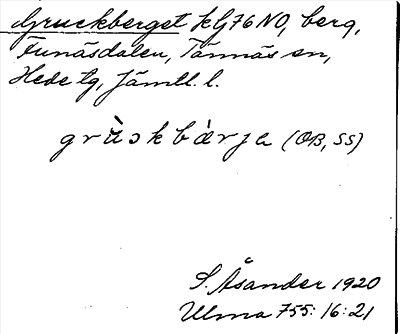 Gruckberget kG76NO, berg,
Funäsdalen, Tännäs sn,
Hede tg, Jämtl. l.
grùskbàrja (OB, SS)
S. Åsander 1920
Ulma 755: 16:21